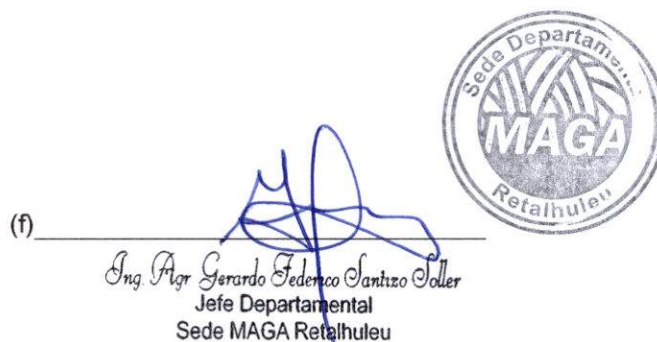 Sede Departamental
MAGA
Retalhuleu
(f)
Ing. Agr Gerardo Federico Santizo Soller
Jefe Departamental
Sede MAGA Retalhuleu